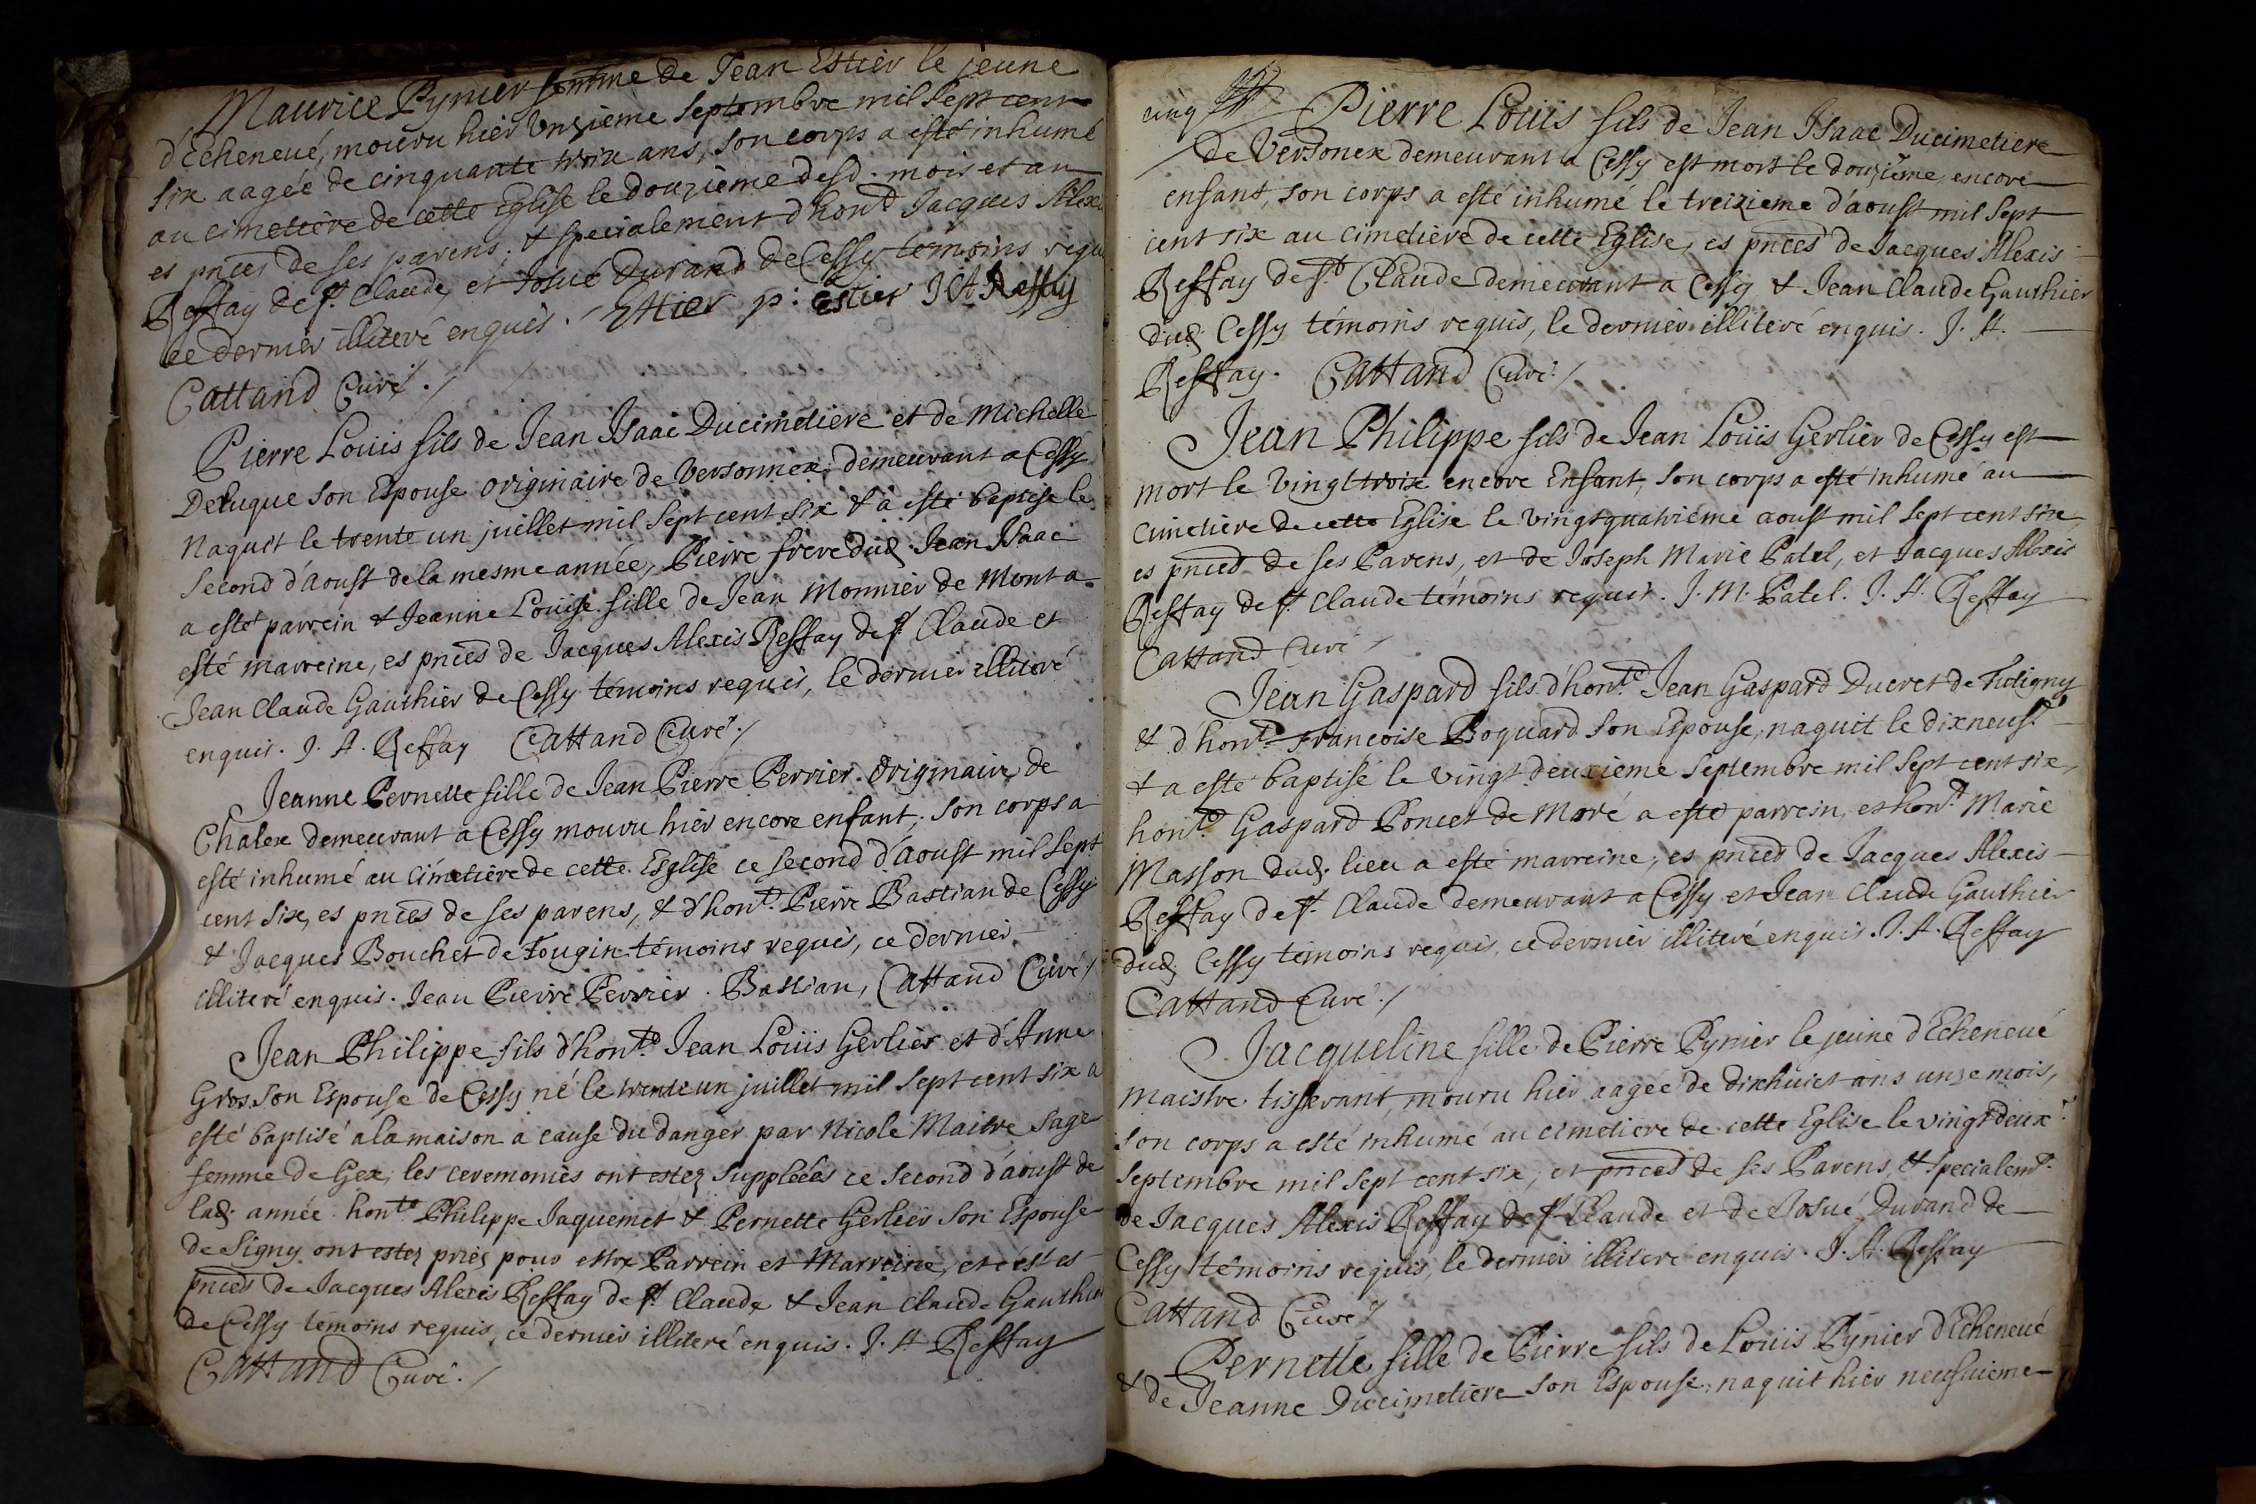 Maurice Pynier femme de Jean Estier le jeune
d'Echenevé, mouru hier unzieme Septembre mil sept cent
six aagée de cinquante troix ans, son corps a esté inhumé
au cimetiere de cette Eglise le douzieme desd. mois et an
es pnces de ses parens, & specialement d'hon.d Jacques Alexis
Reffay de s.t Claude, et Josué Durand de Cessy témoins requis
ce dernier illiteré enquis. Ettier p: estier J A Reffay
Cattand Curé./
Pierre Loüis fils de Jean Isaac Ducimetiere et de Michelle
Deluque son Espouse originaire de Versonnex, demeurant a Cessy
naquit le trente un juillet mil sept cent six & a esté baptisé le
second d'aoust de la mesme année, Pierre frere dud. Jean Isaac
a esté parrein & Jeanne Loüise fille de Jean Monnier de Mont a
esté marreine, es pnces de Jacques Alexis Reffay de s.t Claude et
Jean Claude Gauthier de Cessy témoins requis, le dernier illiteré
enquis. J. A. Reffay Cattand Curé./
Jeanne Pernette fille de Jean Pierre Perrier originaire de
Chalex demeurant a Cessy mouru hier encore enfant, son corps a
esté inhumé au cimetiere de cette Esglise ce second d'aoust mil sept
cent six, es pnces de ses parens, & d'hon.t Pierre Bastian de Cessy
& Jacques Bouchet de Tougin témoins requis, ce dernier
illiteré enquis. Jean Pierre Perrier. Bastian, Cattand Curé/
Jean Philippe fils d'hon.te Jean Loüis Gerlier et d'Anne
Gros son Espouse de Cessy né le trente un juillet mil sept cent six a
esté baptisé a la maison a cause du danger par Nicole Maitre sage
femme de Gex, les ceremonies ont estez suppléées ce second d'aoust de
lad. année. hon.te Philippe Jaquemet & Pernette Gerlier son Espouse
de Signy ont estez priez pour estre Parrein et Marreine, et c'est es
pnces de Jacques Alexis Reffay de s.t Claude & Jean Claude Gauthier
de Cessy témoins requis, ce dernier illiteré enquis. J. A Reffay
Cattand Curé./
cinq Pierre Loüis fils de Jean Isaac Ducimetiere
de Versonex demeurant a Cessy est mort le douzième encore
enfant, son corps a esté inhumé le treizieme d'aoust mil sept
cent six au cimetiere de cette Eglise, es pnces de Jacques Alexis
Reffay de s.t Claude demeurant a Cessy & Jean Claude Gauthier
dud. Cessy témoins requis, le dernier illiteré enquis. J. A.
Reffay. Cattand Curé/
Jean Philippe fils de Jean Loüis Gerlier de Cessy est
mort le vingt troix encore Enfant, son corps a esté inhumé au
cimetiere de cette Eglise le vingtquatriéme aoust mil sept cent six
es pnces de ses Parens, et de Joseph Marie Patel, et Jacques Alexis
Reffay de s.t Claude témoins requis. J. M. Patel. J. A. Reffay
Cattand Curé/
Jean Gaspard fils d'hon.te Jean Gaspard Ducret de Futigny
& d'hon.te Francoise Boquard son Espouse, naquit le dixneuf.e
& a esté baptisé le vingt deuxieme Septembre mil sept cent six,
hon.te Gaspard Poncet de Moré a esté parrein, et hon.te Marie
Masson dud. lieu a esté marreine, es pnces de Jacques Alexis
Reffay de s.t Claude demeurant a Cessy et Jean Claude Gauthier
dud. Cessy témoins requis, ce dernier illiteré enquis. J. A. Reffay
Cattand Curé./
Jacqueline fille de Pierre Pynier le jeune d'Echenevé
maistre tisserant, mouru hier aagée de dixhuict ans unze mois,
son corps a esté inhumé au cimetiere de cette Eglise le vingtdeux.e
septembre mil sept cent six, es pnces de ses Parens, & specialem.t
de Jacques Alexis Reffay de s.t Claude et de Josué Durand de
Cessy témoins requis, le dernier illiteré enquis. J. A. Reffay
Cattand Curé/
Pernette fille de Pierre fils de Loüis Pynier d'Echenevé
& de Jeanne Ducimetiere son Espouse, naquit hier neufvieme